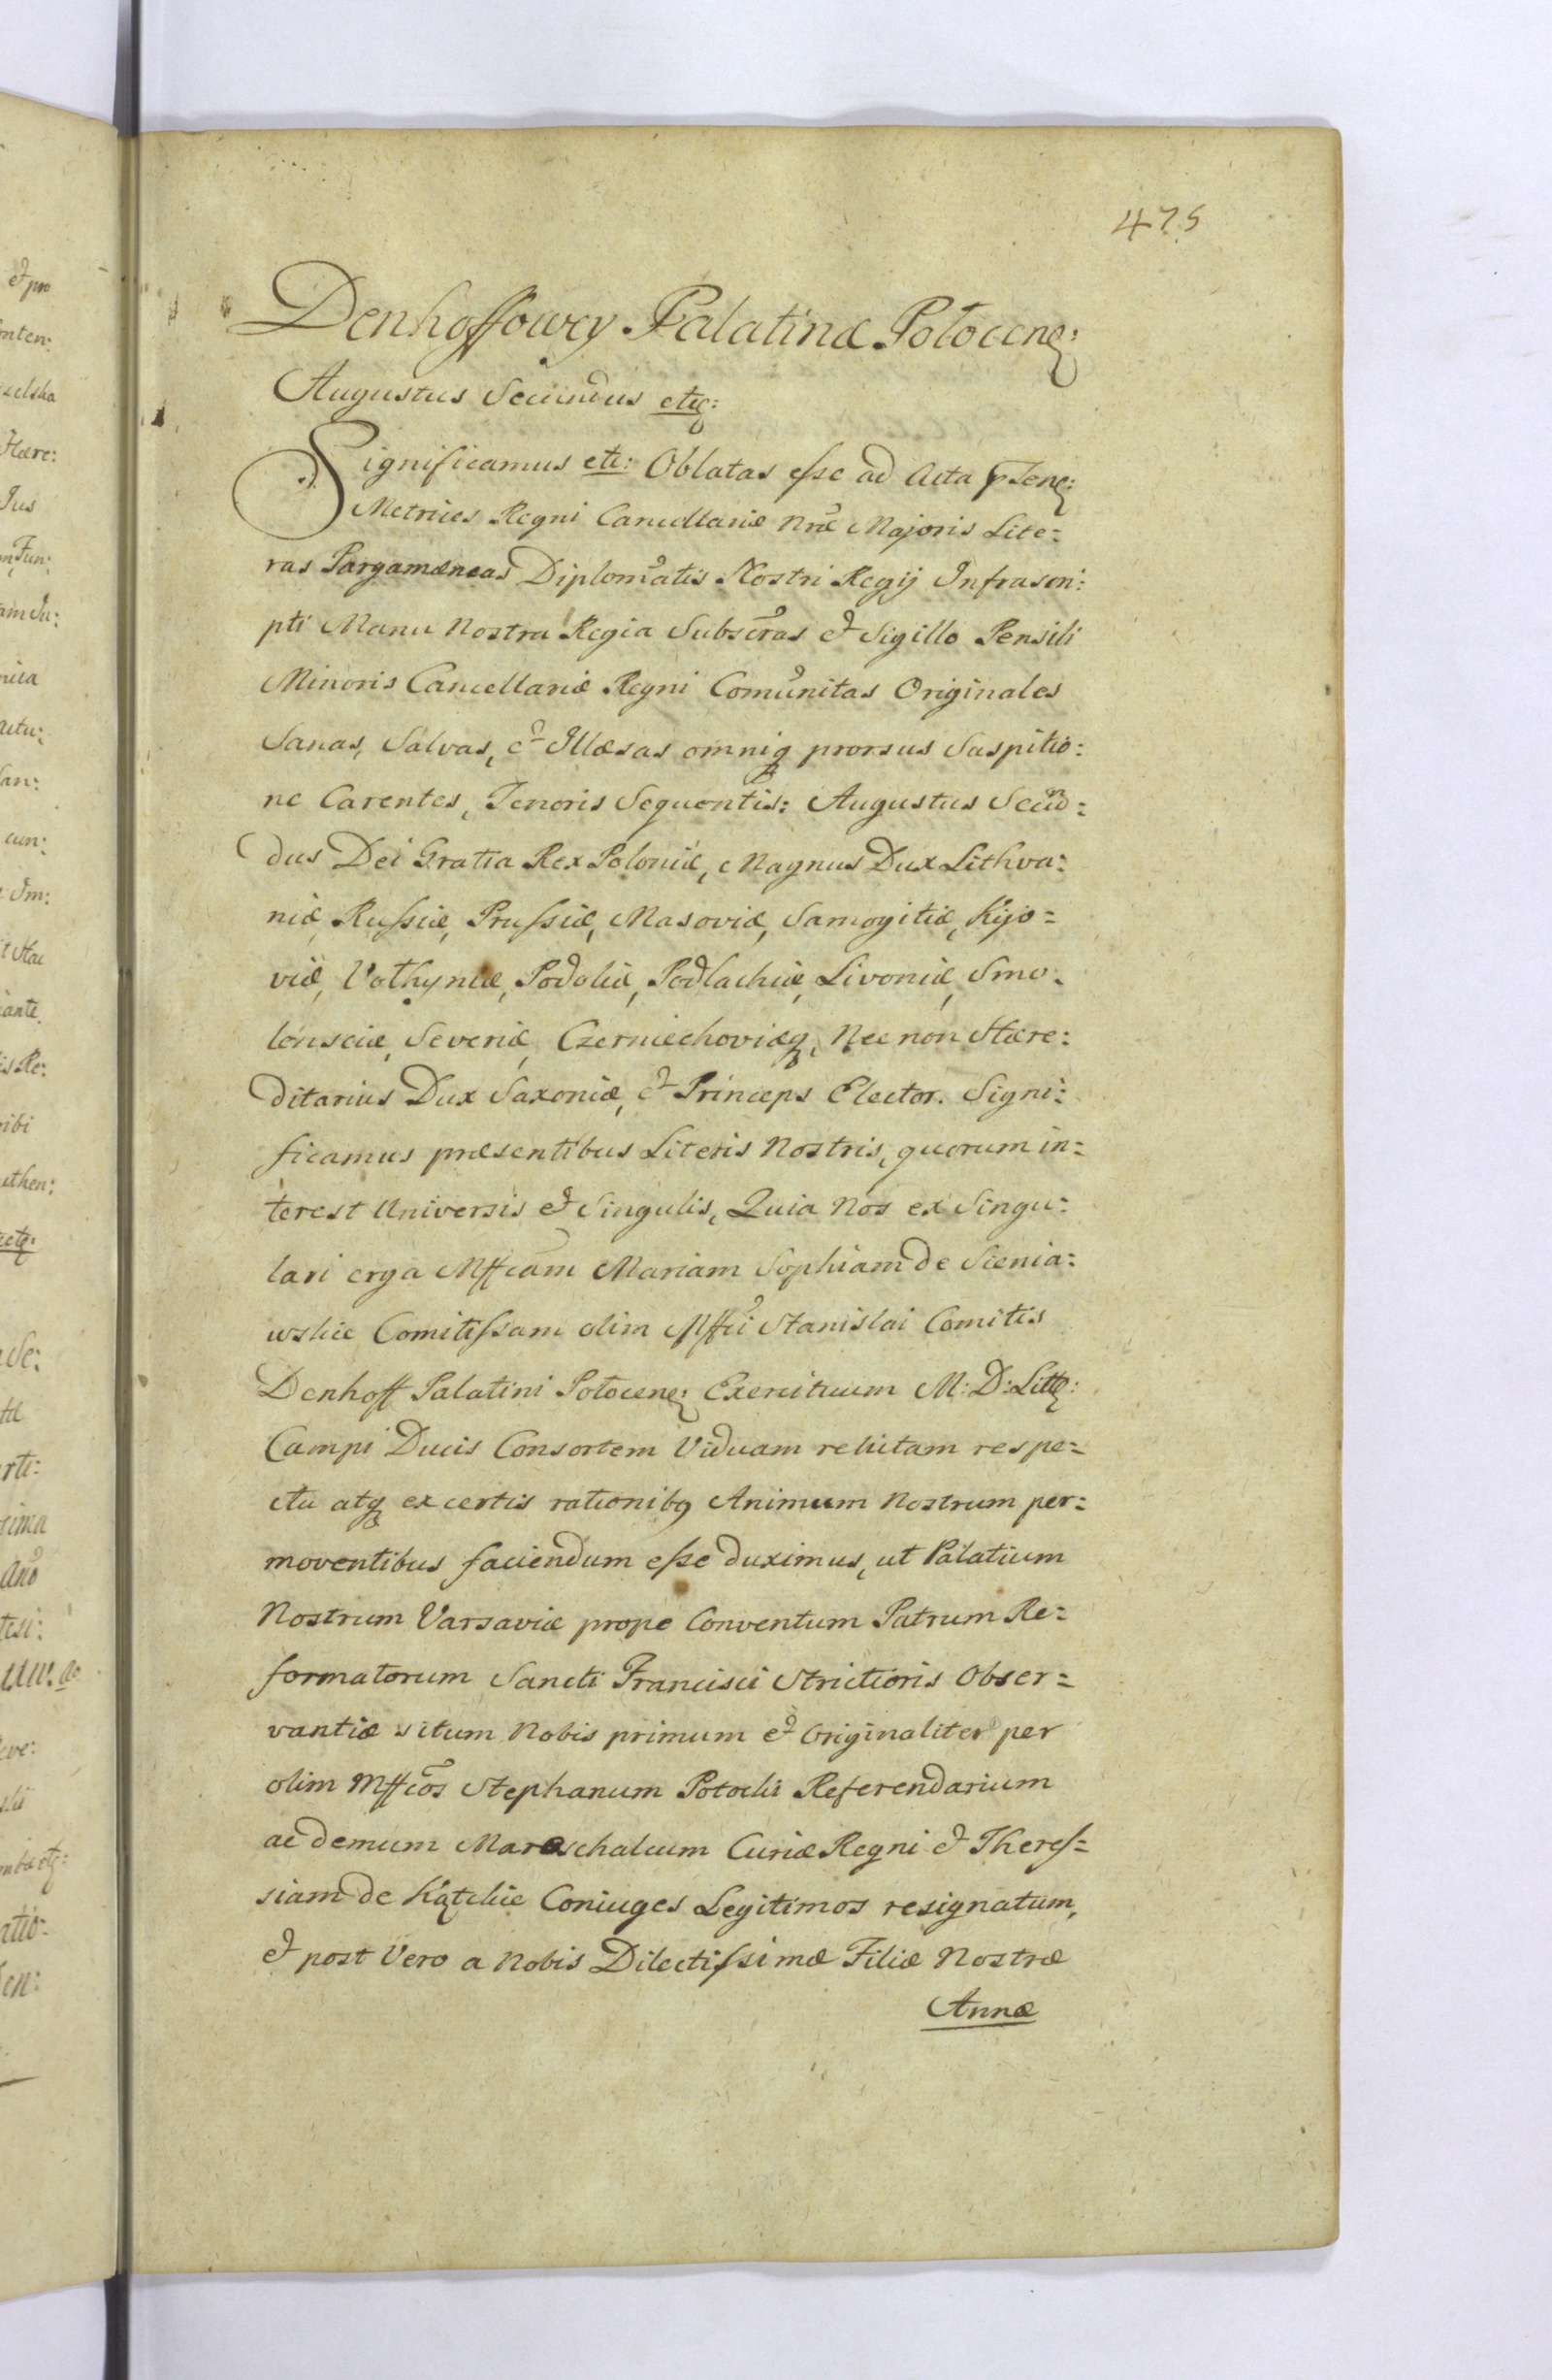 475
Denhoffowey Palatinæ Polocene:
Augustus Secundus etc:
Significamus etc: Oblatas esse ad Acta pstene:
Metrices Regni Cancellariæ nræ Majoris Lite=
ras Pargamæneas Diplomatis Nostri Regij Infrascri:
pti Manu Nostra Regia Subscras et Sigillo Pensili
Minoris Cancellariæ Regni Comunitas Originales
Sanas, Salvas, et Illæsas omniq prorsus Suspitio:
ne Carentes, Tenoris Sequentis: Augustus Secun=
dus Dei Gratia Rex Poloniæ, Magnus Dux Lithva:
niæ, Russiæ, Prussiæ, Masoviæ, Samogitiæ, Kijo=
viæ, Volhyniæ, Podoliæ, Podlachiæ, Livoniæ, Smo:
lensciæ, Severiæ, Czerniechoviæq, Nec non Hære:
ditarius Dux Saxoniæ, et Princeps Elector. Signi:
ficamus præsentibus Literis Nostris, quorum in=
terest Universis et Singulis, Quia Nos ex Singu:
lari erga Mffcam Mariam Sophiam de Sienia:
wskie Comitissam olim Mffci Stanislai Comitis
Denhoff Palatini Polocene: Exercituum M: D: Litt:
Campi Ducis Consortem Viduam relictam respe=
ctu atq ex certis rationibq Animum Nostrum per=
moventibus faciendum esse duximus, ut Palatium
Nostrum Varsaviæ prope Conventum Patrum Re=
formatorum Sancti Francisci Strictioris Obser=
vantiæ situm Nobis primum et Originaliter per
olim Mffcos Stephanum Potocki Referendarium
ac demum Mareschalcum Curiæ Regni et Theres=
siam de Kątckie Coniuges Legitimos resignatum,
et post Vero a Nobis Dilectissimæ Filiæ Nostræ
Annæ